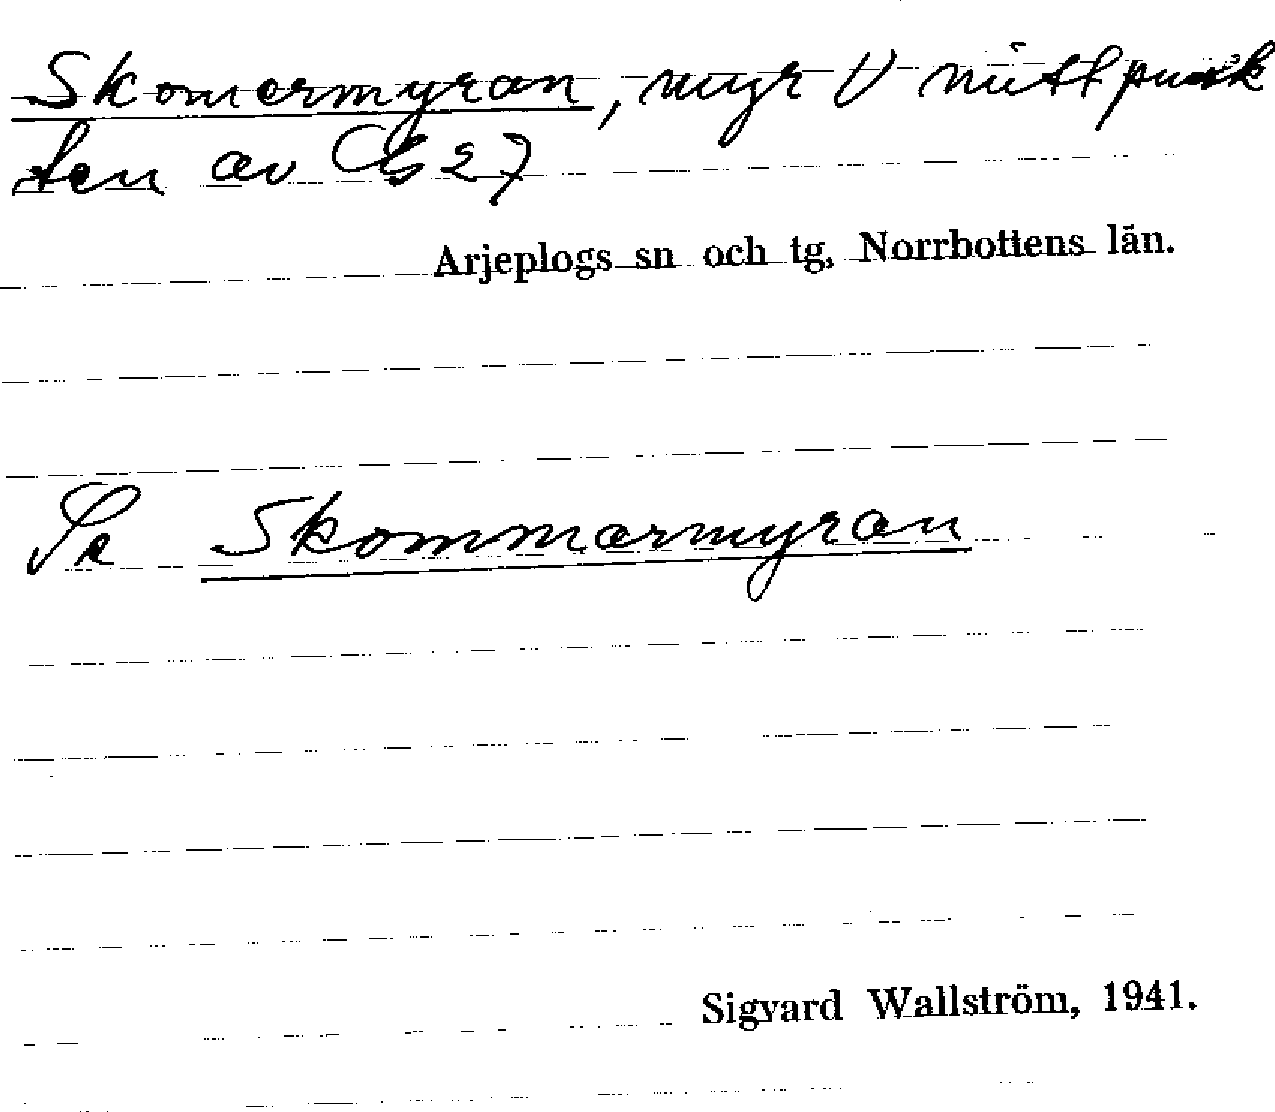 Skomermyran, myr V mittpunk
ten av Cg 27
Arjeplogs sn och tg, Norrbottens län.
Se Skommarmyran
Sigvard Wallström, 1941.